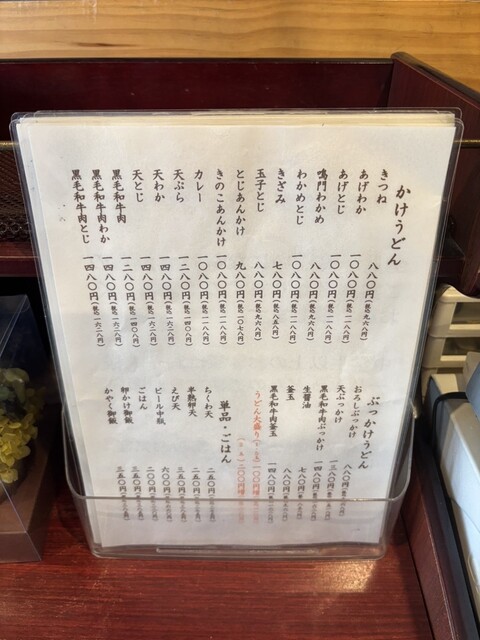 かけうどん
きつね 八八〇円(税込九六八円)
あげわか 一〇八〇円(税込一一八八円)
あげとじ 一〇八〇円(税込一一八八円)
鳴門わかめ 八八〇円(税込九六八円)
わかめとじ 一〇八〇円(税込一一八八円)
きざみ 七八〇円(税込八五八円)
玉子とじ 八八〇円(税込九六八円)
とじあんかけ 九八〇円(税込一〇七八円)
きのこあんかけ 一〇八〇円(税込一一八八円)
カレー 一〇八〇円(税込一一八八円)
天ぷら 一二八〇円(税込一四〇八円)
天わか 一四八〇円(税込一六二八円)
天とじ 一四八〇円(税込一六二八円)
黒毛和牛肉 一二八〇円(税込一四〇八円)
黒毛和牛肉わか 一四八〇円(税込一六二八円)
黒毛和牛肉とじ 一四八〇円(税込一六二八円)
ぶっかけうどん
おろしぶっかけ 八八〇円
天ぶっかけ 一三八〇円
黒毛和牛肉ぶっかけ 一四八〇円
生醤油 七八〇円
釜玉 八八〇円
黒毛和牛肉釜玉 一四八〇円
うどん大盛り 一〇〇円増
二〇〇円増
単品・ごはん
ちくわ天 二五〇円
半熟卵天 二五〇円
えび天 三五〇円
ビール中瓶 六〇〇円
ごはん 二〇〇円
卵かけ御飯 三五〇円
かやく御飯 三五〇円